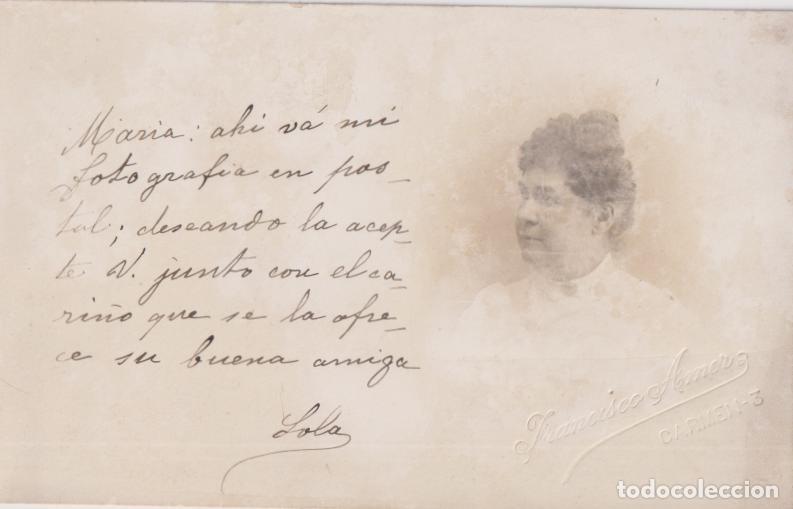 Maria: ahi vá mi
fotografia en pos-
tal; deseando la acep-
te V. junto con el ca-
riño que se la ofre-
ce su buena amiga
Lola
Francisco Amer
CARMEN-3
todocoleccion